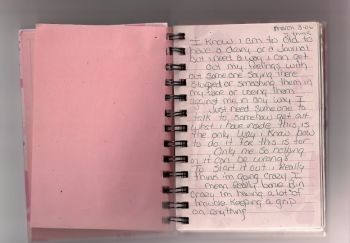 March 3-06
I Know I am to old to
have a diary or a Journal
but I need a way I can get
out my feelings with
out some one saying there
Stuped or smashing them in
my face or useing them
against me in any way I
Just need someone to
talk to, somehow get out
what I have inside this is
the only way I know how
to do it for this is for
Only me so nothing
in it can be wrong!
To Start it out I Really
think I'm going Crazy I
mean Really loane Bin
crazy I'm having a lot of
trouble keeping a grip
on anything